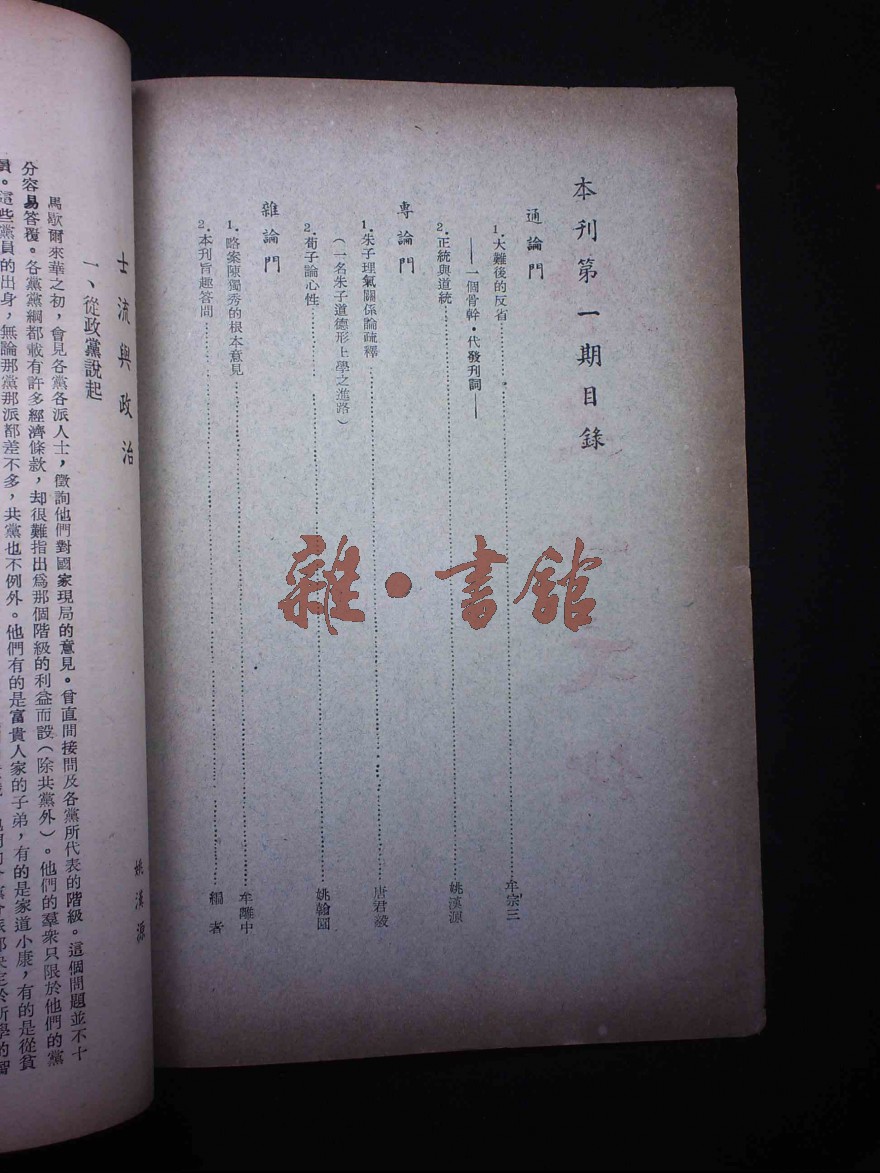 本刊第一期目錄
通論門
1.大難後的反省……牟宗三
——一個骨幹·代發刊詞——
2.正統與道統……姚漢源
專論門
1.朱子理氣關係論疏釋……唐君毅
（一名朱子道德形上學之進路）
2.荀子論心性……姚翰園
雜論門
1.略案陳獨秀的根本意見……牟離中
2.本刊旨趣答問……編者
士流與政治
姚漢源
一、從政黨說起
馬歇爾來華之初，會見各黨各派人士，徵詢他們對國家現局的意見。曾直間接問及各黨所代表的階級。這個問題並不十
分容易答覆。各黨黨綱都載有許多經濟條款，却很難指出爲那個階級的利益而設（除共黨外）。他們的羣衆只限於他們的黨
員。這些黨員的出身，無論那黨那派都差不多，共黨也不例外。他們有的是富貴人家的子弟，有的是家道小康，有的是從貧
雜·書館